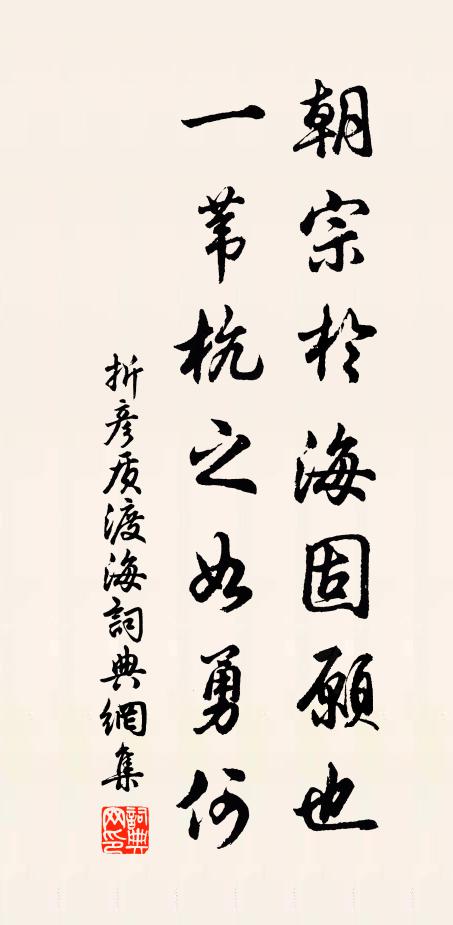 朝宗於海固願也
一苇杭之如勇何
折彦质渡海詞典網集
詞典网印